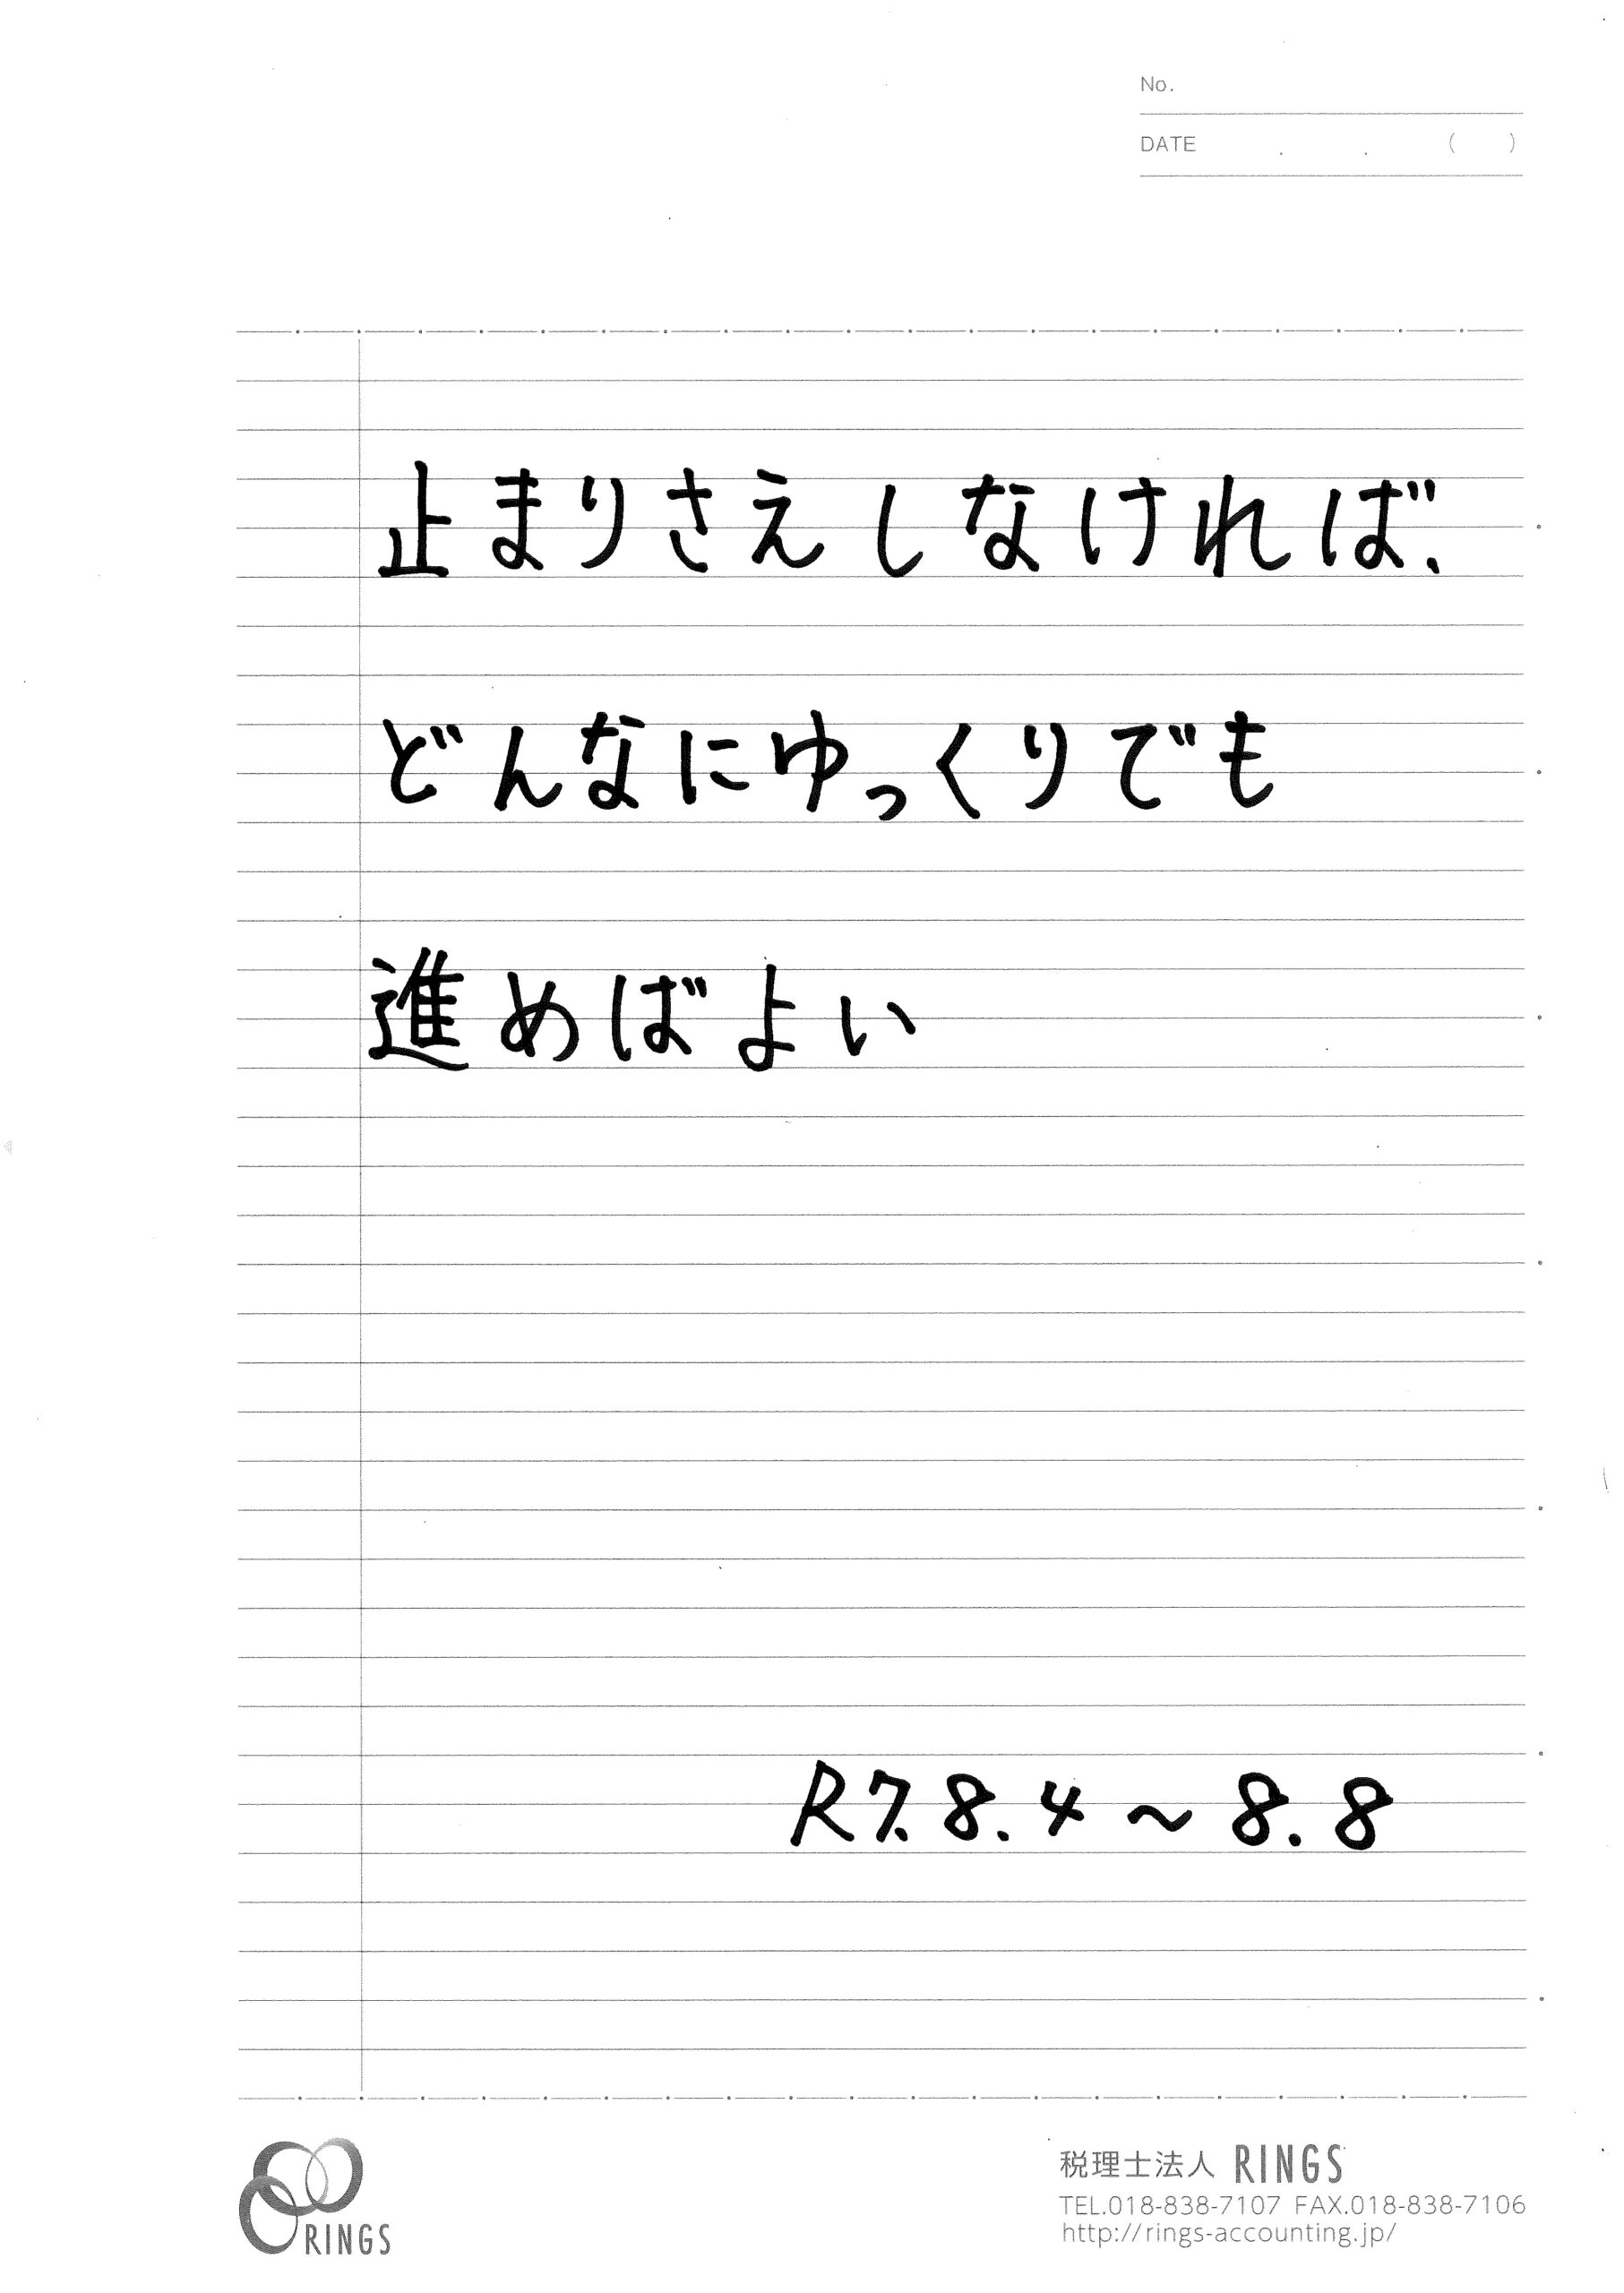 No.
DATE . . ( )
止まりさえしなければ、
どんなにゆっくりでも
進めばよい
R7.8.4~8.8
RINGS
税理士法人 RINGS
TEL.018-838-7107 FAX.018-838-7106
http://rings-accounting.jp/